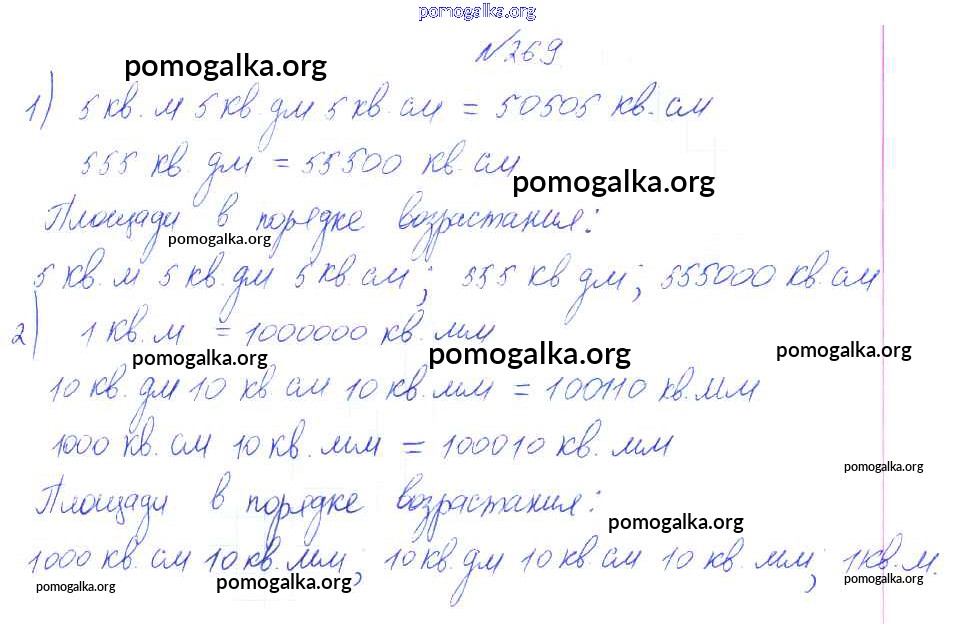 pomogalka.org
№269
pomogalka.org
1) 5 кв. м 5 кв. дм 5 кв. см = 50505 кв. см
555 кв. дм = 55500 кв. см
pomogalka.org
Площади в порядке возрастания:
pomogalka.org
5 кв. м 5 кв. дм 5 кв. см; 555 кв дм; 555000 кв. см
2) 1 кв. м = 1000000 кв. мм
pomogalka.org pomogalka.org pomogalka.org
10 кв. дм 10 кв см 10 кв. мм = 100110 кв. мм
1000 кв. см 10 кв. мм = 100010 кв. мм
pomogalka.org
Площади в порядке возрастания:
pomogalka.org
1000 кв. см 10 кв. мм; 10 кв. дм 10 кв. см 10 кв. мм; 1 кв. м.
pomogalka.org pomogalka.org pomogalka.org